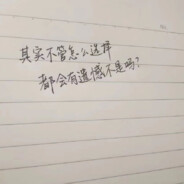 其实不管怎么选择
都会有遗憾不是吗?